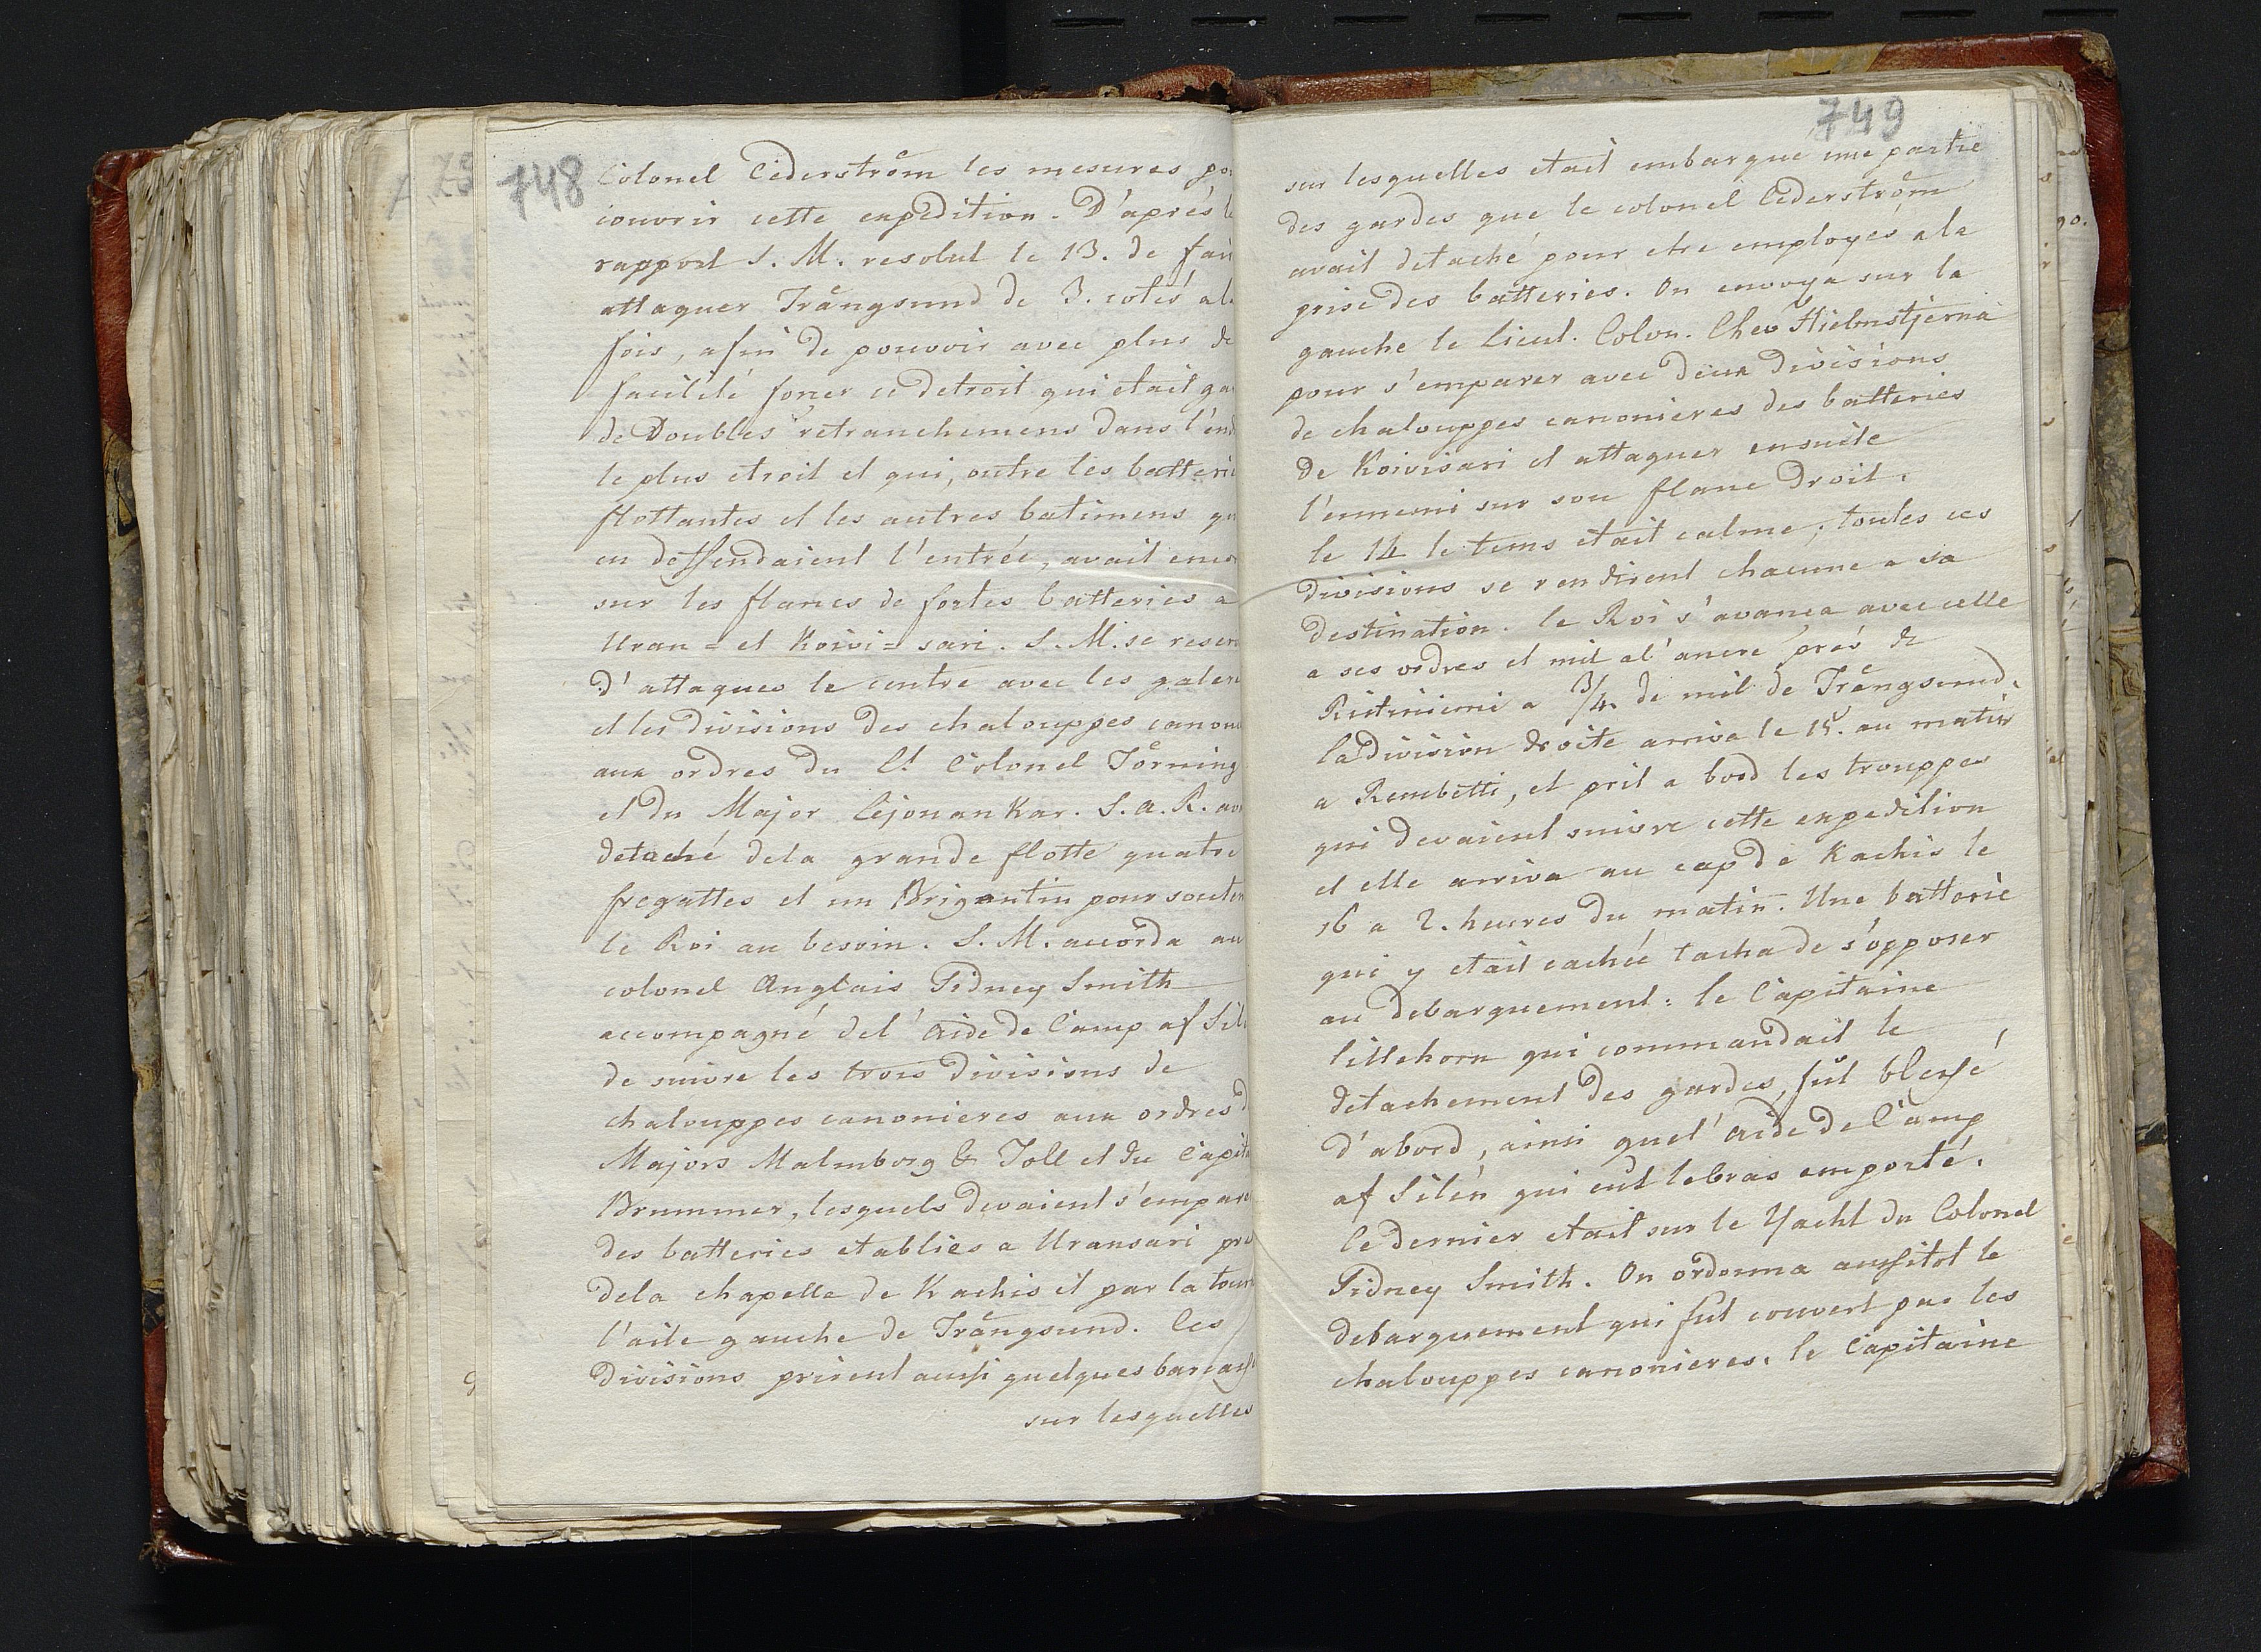 748
Colonel Cederström les mesures po
couvrir cette expedition. D'aprés l
rapport S. M. resolut le 13. de fai
attaquer Trångsund de 3. cotés a l
fois, afin de pouvoir avec plus de
facilité forcer ce detroit qui etait ga
de Doubles retranchemens dans l'end
le plus etroit et qui, outre les batterie
flottantes et les autres batimens qu
en deffendaient l'entrée, avait enco
sur les flancs de fortes batteries a
Uran= et Koivi= sari. S. M. se reser
d'attaquer le centre avec les galer
et les divisions des chalouppes canon
aux ordres du Lt Colonel Törning
et du Major Lejonankar. S. A. R. av
detaché dela grande flotte quatre
fregattes et un Brigantin pour souten
le Roi au besoin. S. M. accorda au
colonel Anglais Sidney Smith
accompagné del' Aide de Camp af Sil
de suivre les trois divisions de
chalouppes canonieres aux ordres d
Majors Malmborg & Toll et du Capit
Brummer, lesquels devaient s'empar
des batteries etablies a Uransari pre
dela chapelle de Kachis et par la tour
l'aile gauche de Trångsund. Ces
divisions prirent aussi quelques barcass
sur lesquelles
749
sur lesquelles etait embarqué une partie
des gardes que le colonel Cederström
avait detaché pour etre employés a la
prise des batteries. On envoya sur la
gauche le Lieut. Colon. Chev Hielmstjerna
pour s'emparer avec deux divisions
de chalouppes canonieres des batteries
de Koivisari et attaquer ensuite
l'ennemi sur son flanc droit.
le 14 le tems etait calme; toutes ces
divisions se rendirent chacune a sa
destination. le Roi s'avanca avec celle
a ses ordres et mit al'ancre prés de
Ristiniemi a 3/4 de mil de Trångsund.
la division droite arriva le 15. au matin
a Rembetti, et prit a bord les trouppes
qui devaient suivre cette expedition
et elle arriva au cap de Kachis le
16 a 2. heures du matin. Une batterie
qui y etait cachée tacha de s'opposer
au debarquement: le Capitaine
Lillehorn qui commandait le
detachement des gardes, fut blessé
d'abord, ainsi quel' Aide de Camp
af Silén qui eut lebras emporté.
Ce dernier etait sur le Yacht du Colonel
Sidney Smith. On ordonna aussitot le
debarquement qui fut couvert par les
chalouppes canonieres. le Capitaine